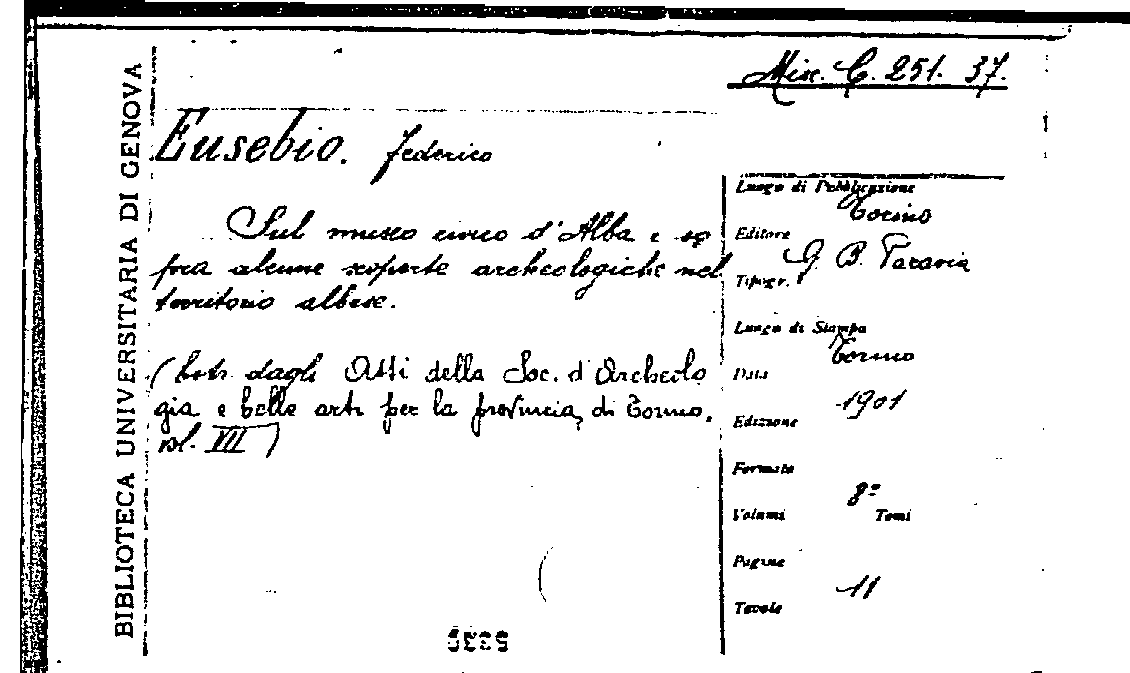 Misc. C. 251. 37.
BIBLIOTECA UNIVERSITARIA DI GENOVA
Eusebio. Federico
Sul museo civico d'Alba e so
pra alcune scoperte archeologiche nel
territorio albese.
(Estr. dagli Atti della Soc. d'Archeolo
gia e belle arti per la provincia di Torino.
vol. VII)
Luogo di Pubblicazione
Torino
Editore
G. B. Paravia
Tipogr.
Luogo di Stampa
Torino
Data
1901
Edizione
Formato
8°
Volumi Tomi
Pagine
11
Tavole